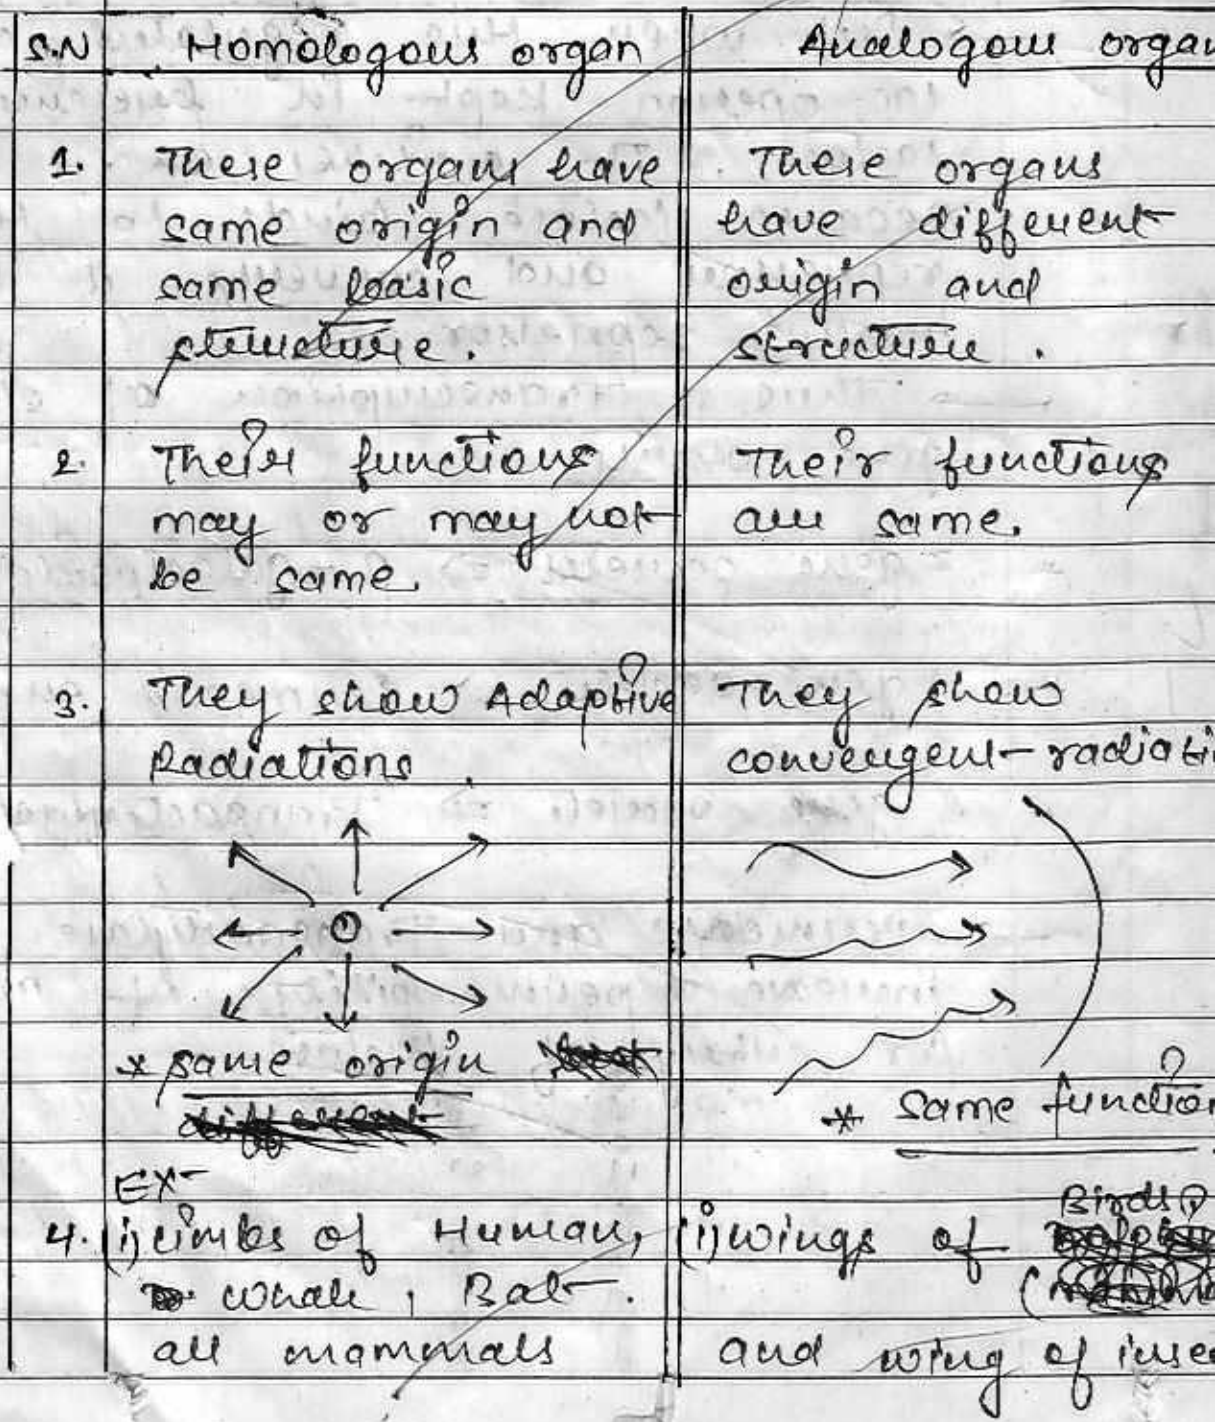 S.N Homologous organ Analogous organ
1. These organs have same origin and same basic structure.
These organs have different origin and structure.
2. Their functions may or may not be same.
Their functions are same.
3. They show Adaptive Radiations.
They show convergent radiati
* same origin
* same function
Ex-
4. (i) Limbs of Human, whale, Bat. all mammals
(i) wings of Birds and wing of insec